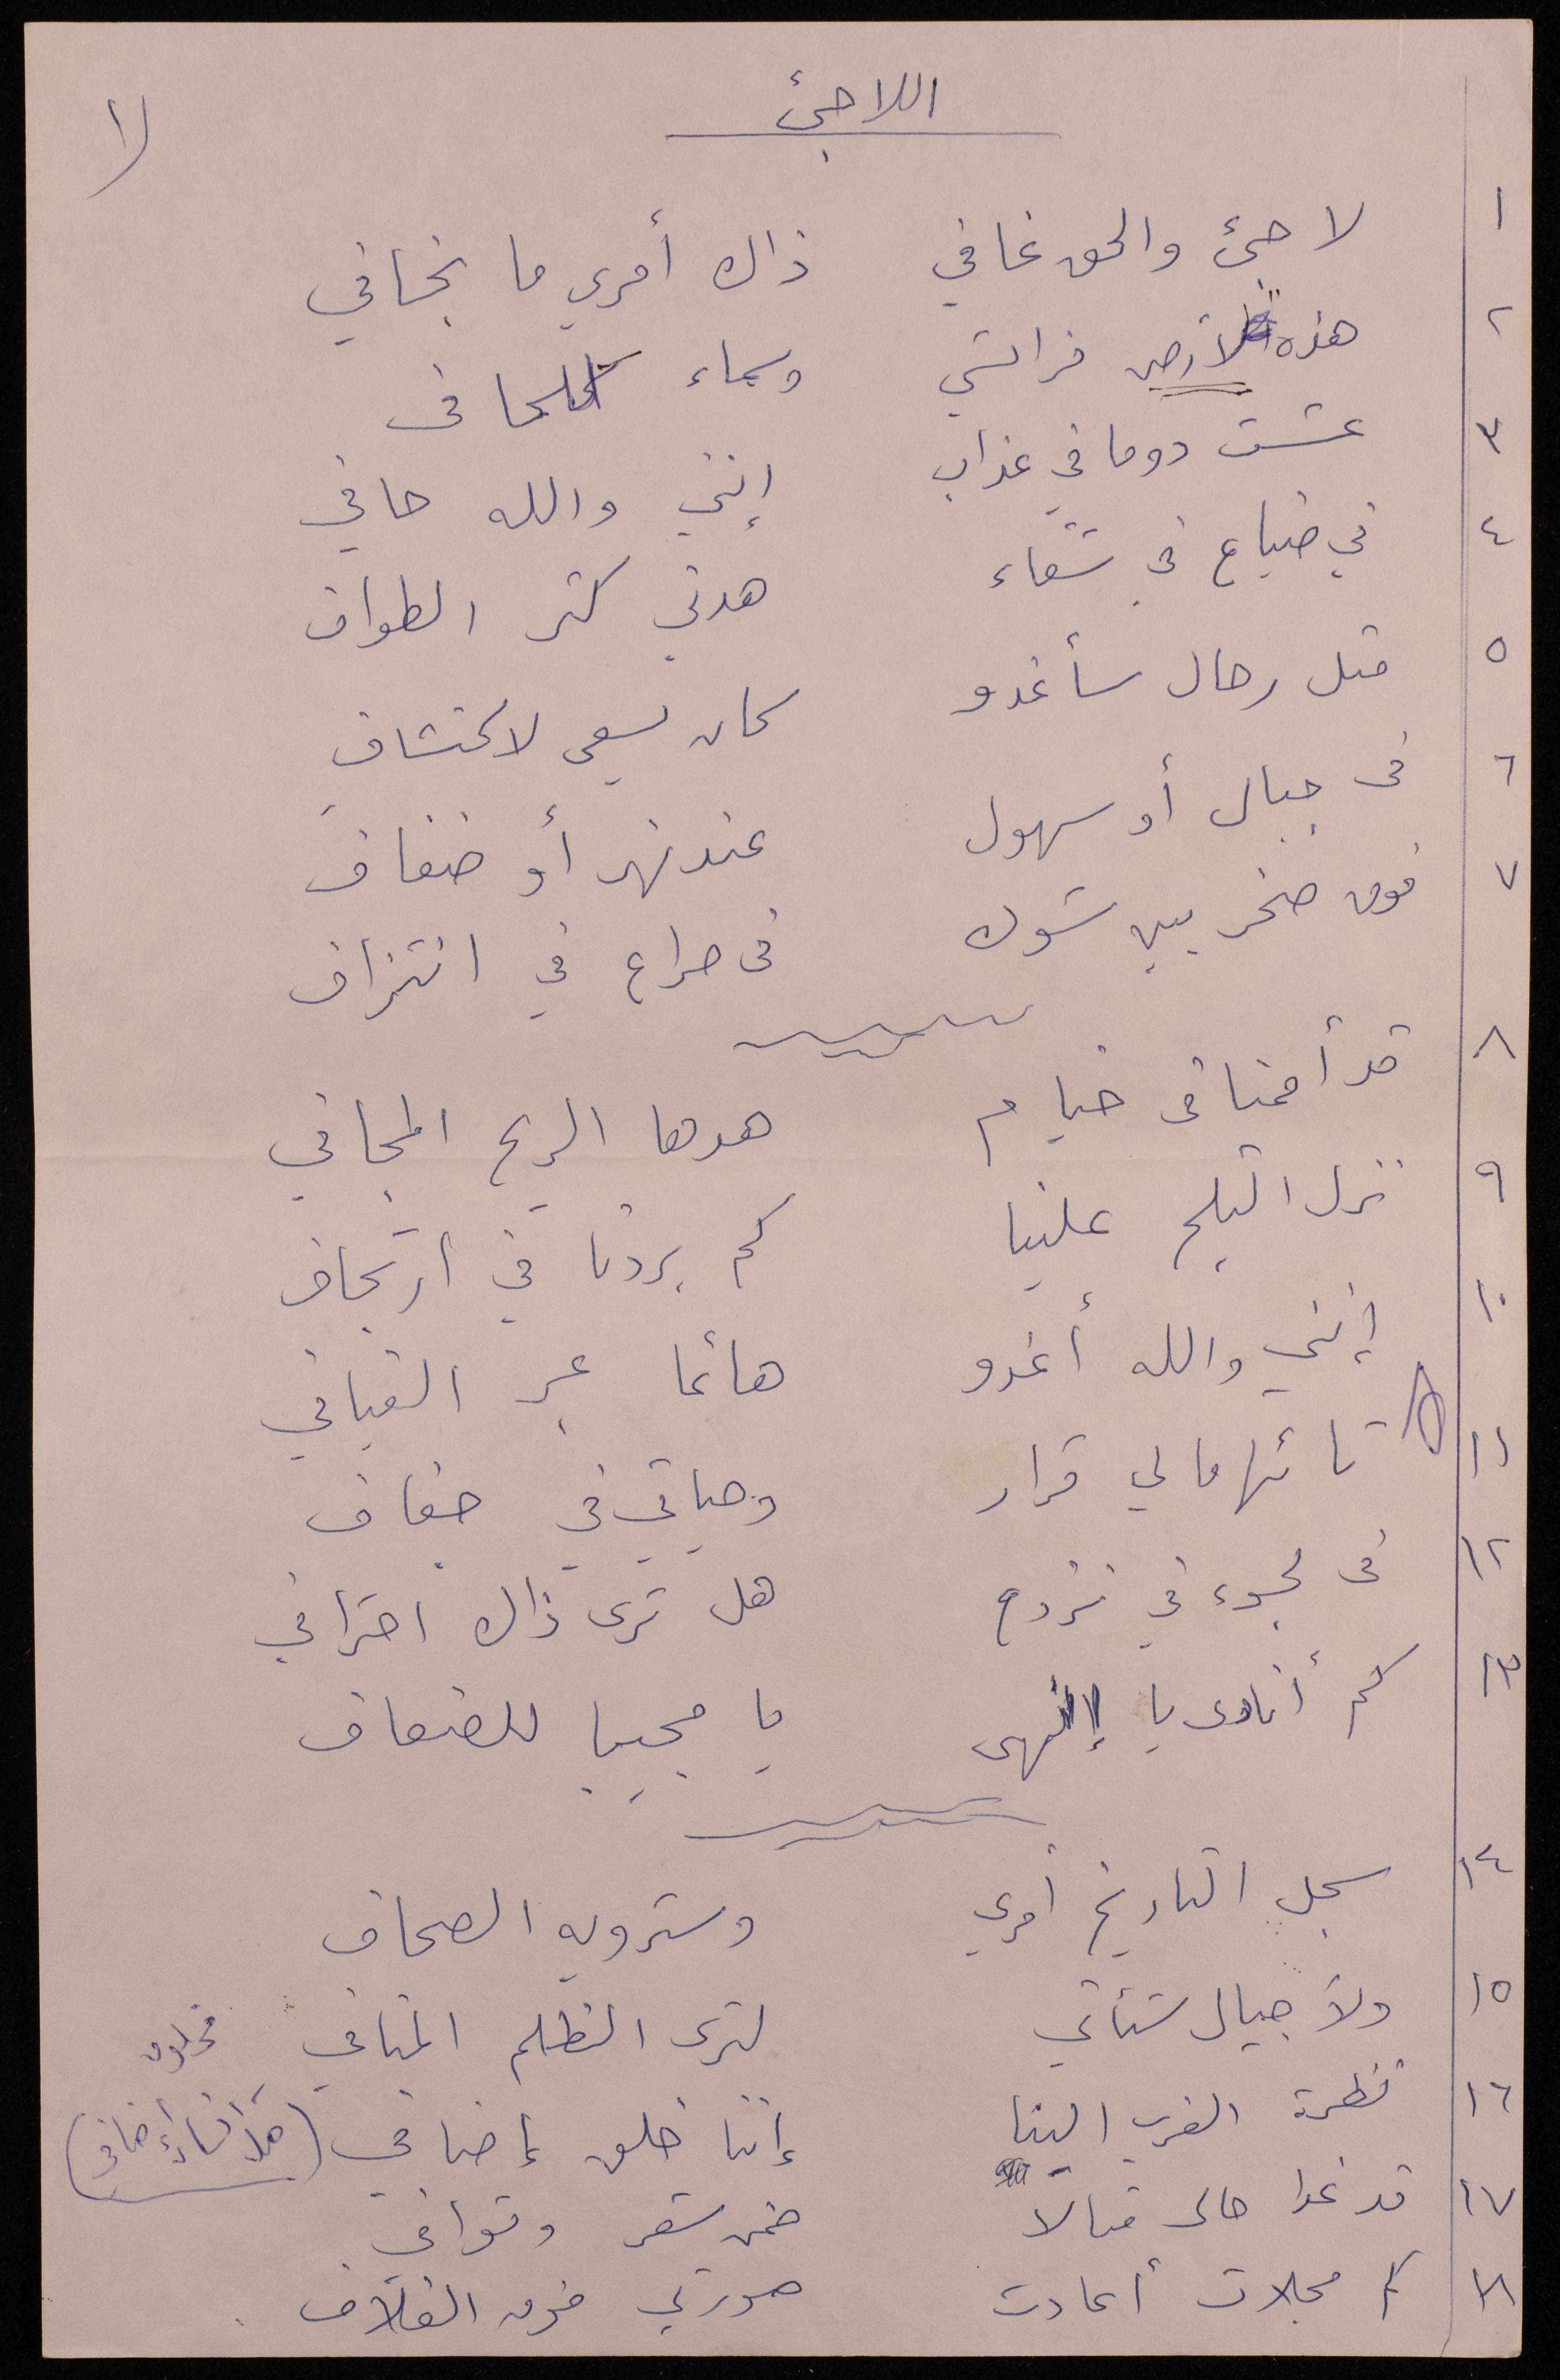 اللاجئ
لا
١ لاجئ والحق غافي ذاك أمري ما بخافي
٢ هذه الأرض فراشي وسماء لحافى
٣ عشت دوما في عذاب إنني والله حافي
٤ في ضياع في شقاء هدني كثر الطواف
٥ مثل رحال سأغدو كان يسعى لاكتشاف
٦ فى جبال أو سهول عند نهر أو ضفاف
٧ فوق صخر بين شوك فى صراع في انتزاف
٨ قد أقمنا فى خيام هدها الريح المجافي
٩ نزل الثلج علينا كم بردنا في ارتجاف
١٠ إنني والله أغدو هائما عبر الفيافي
١١ تائها مالي قرار وحياتي في جفاف
١٢ فى لجوء في نزوح هل ترى ذاك احترافي
١٣ كم أنادى يا إلهى يا مجيبا للضعاف
١٤ سجل التاريخ أمري وسترويه الصحاف
١٥ ولأجيال ستأتي لترى الظلم المنافي
١٦ نظرة الغرب الينا إننا خلق إضافي
مخلوق
١٧ قد غدا حالى مثالا ضمن شعر وقوافي
١٨ كم مجلات أعادت صورتي فوق الغلاف